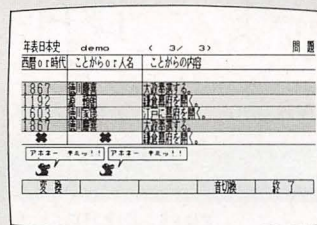 年表日本史 demo ( 3/ 3) 問 題
西暦or時代 ことがらor人名 ことがらの内容
1867 徳川慶喜 大政奉還する。
1192 源 頼朝 鎌倉幕府を開く。
1603 徳川家康 江戸に幕府を開く。
1867 徳川慶喜 大政奉還する。
1192 鎌倉幕府を開く。
アホネー キミっ!! アホネー キミっ!!
変 換 音切換 終 了